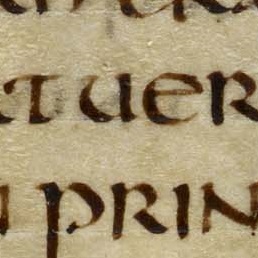 tuer
prin